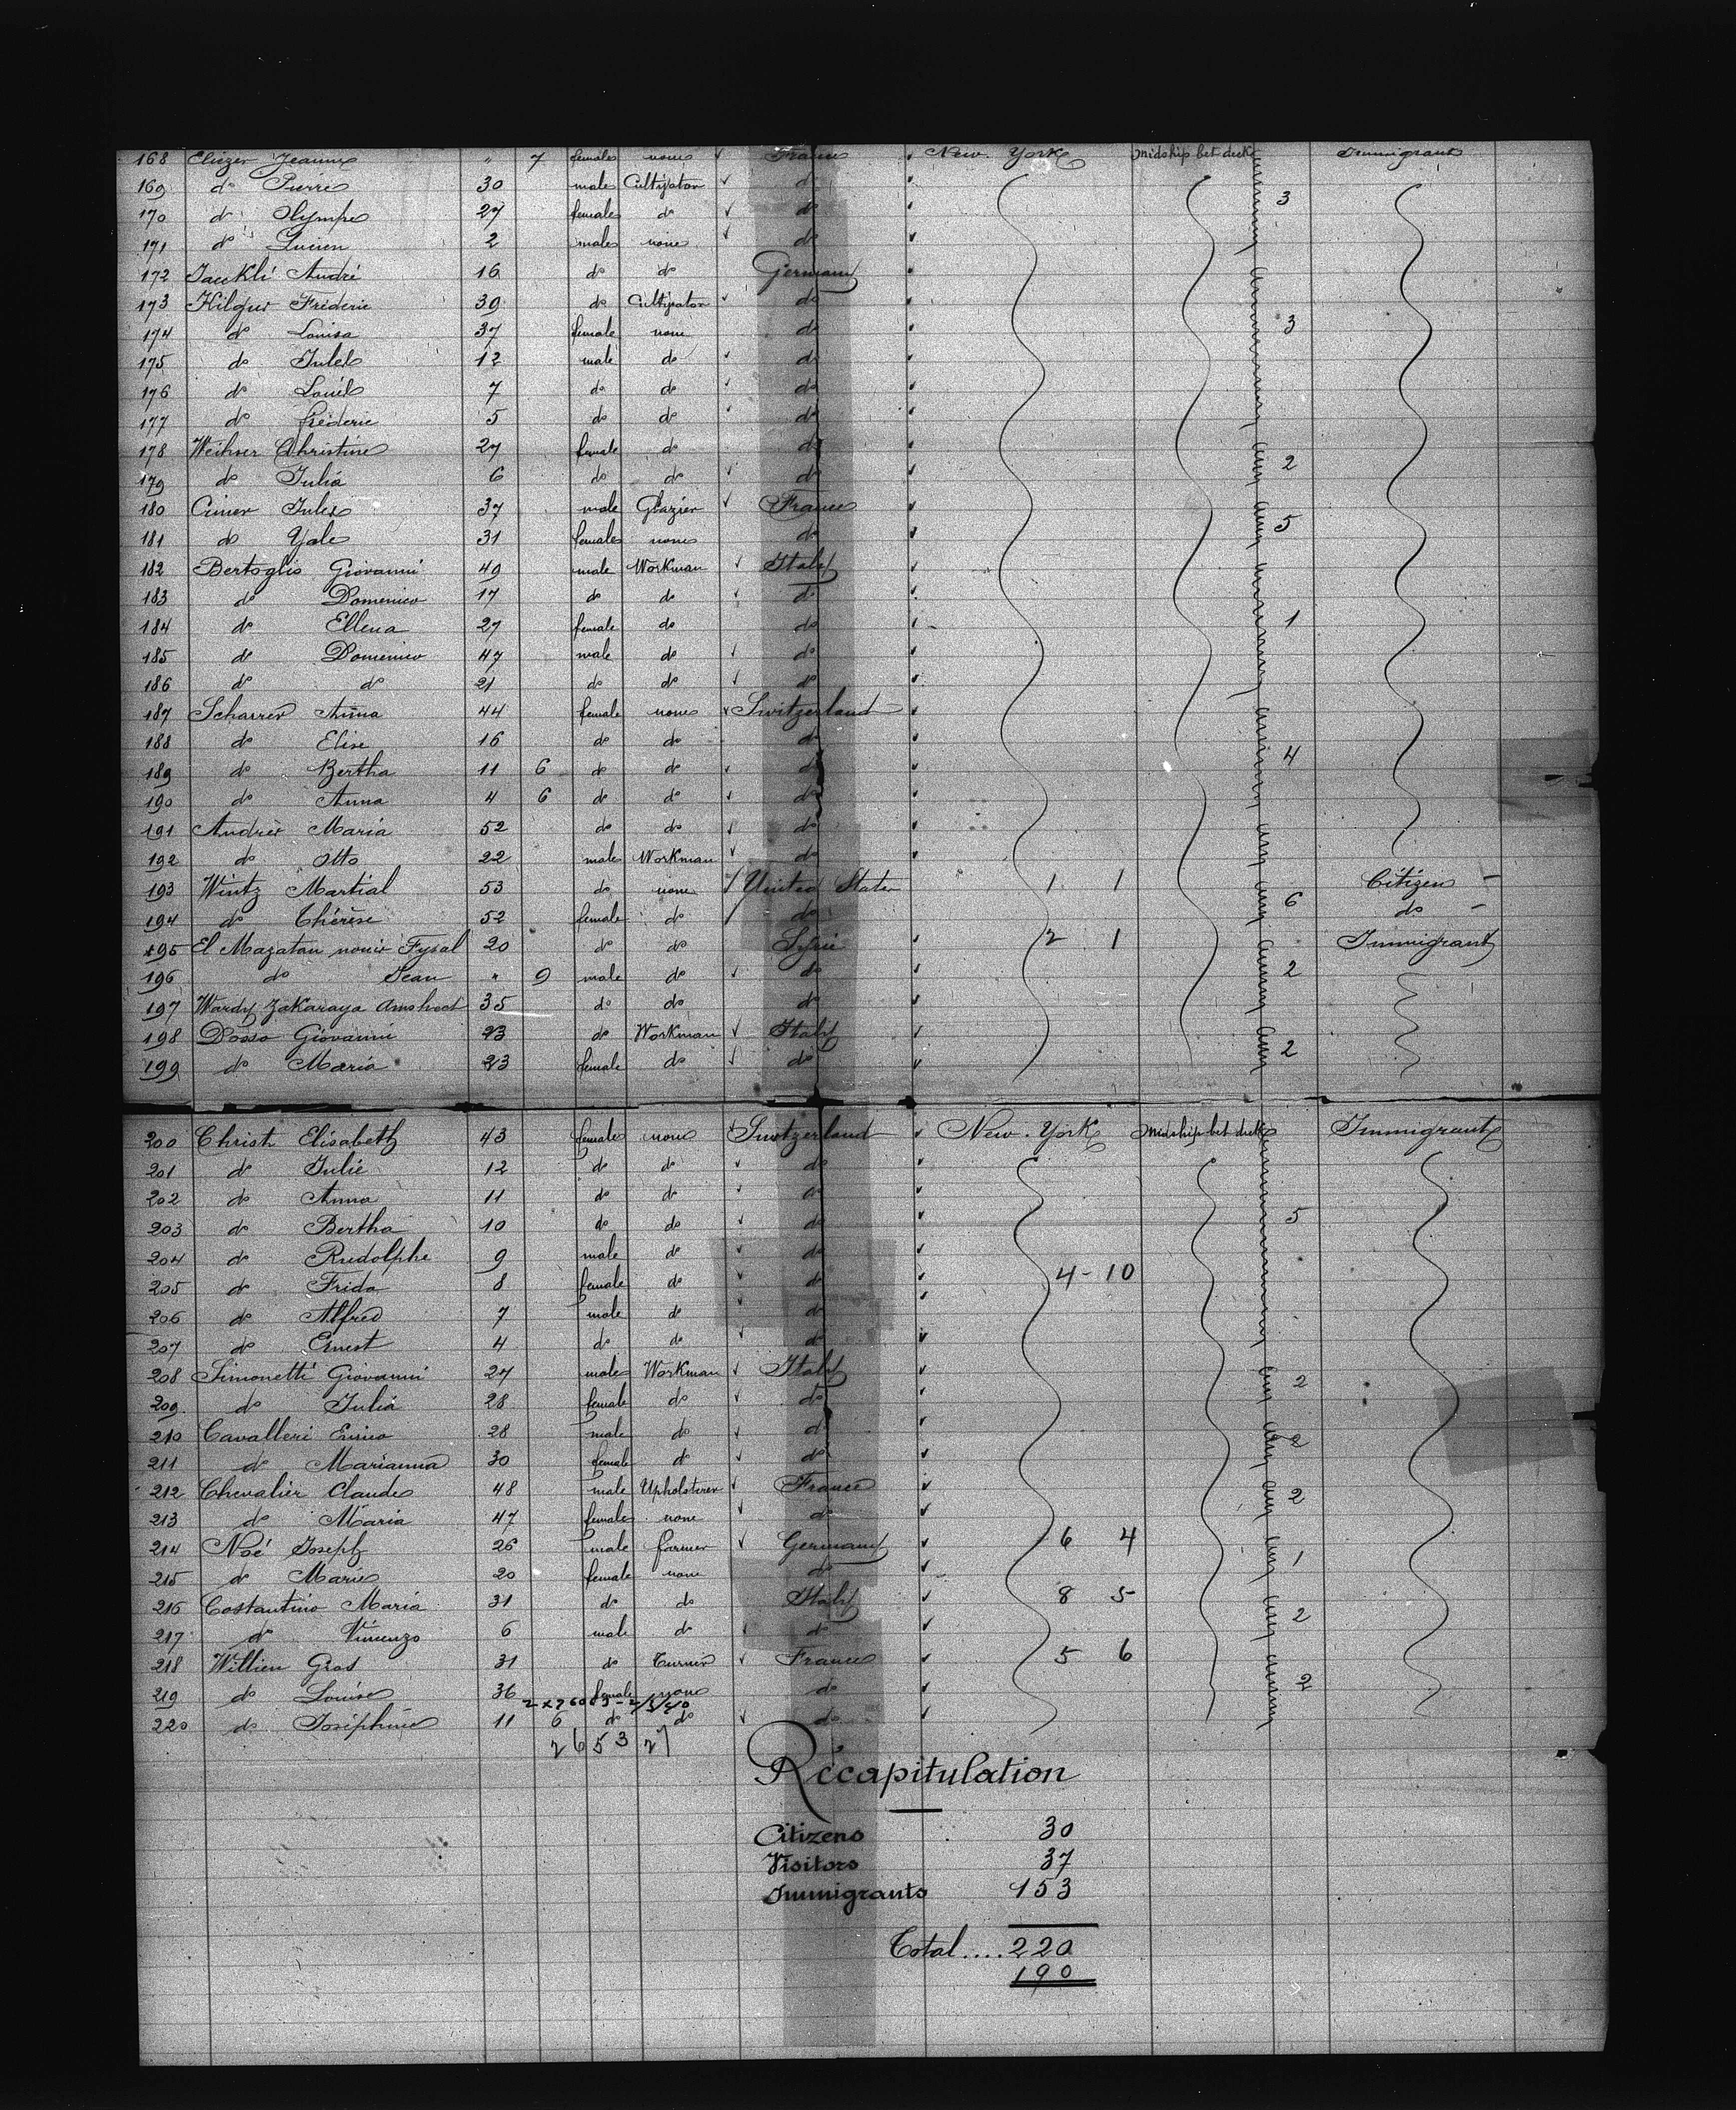 168 Eliezer Jeanne " 7 female none ✓ France ✓ New York midship bet deck Immigrant
169 do Pierre 30 male Cultivator ✓ do ✓ 3
170 do Olympe 27 female do ✓ do ✓
171 do Lucien 2 male none ✓ do ✓
172 Jauckli André 16 do do Germany
173 Hilgur Frédéric 39 do Cultivator ✓ do ✓
174 do Louisa 37 female none do ✓ 3
175 do Jules 12 male do ✓ do ✓
176 do Louis 7 do do ✓ do ✓
177 do frédéric 5 do do ✓ do ✓
178 Weihner Christine 27 female do do ✓ 2
179 do Julia 6 do do ✓ do ✓
180 Cuner Jules 37 male Glazier ✓ France ✓
181 do Yale 31 female none do ✓ 5
182 Bertoglio Giovanni 49 male Workman ✓ Italy ✓
183 do Domenico 17 do do ✓ do ✓
184 do Ellena 27 female do do ✓ 1
185 do Domenico 47 male do ✓ do ✓
186 do do 21 do do ✓ do ✓
187 Scharrer Anna 44 female none ✓ Switzerland ✓
188 do Elise 16 do do do ✓
189 do Bertha 11 6 do do ✓ do ✓ 4
190 do Anna 4 6 do do ✓ do ✓
191 Andrès Maria 52 do do ✓ do ✓
192 do Otto 22 male Workman ✓ do ✓
193 Wintz Martial 53 do none ✓ United States 1 1 Citizen -
194 do Thérèse 52 female do do 6 do -
195 El Mazatan nouir Fysal 20 do do Syrie ✓ 2 1 Immigrant
196 do Jean " 9 male do ✓ do ✓ 2
197 Wardy Zakaraya 35 do do do ✓
198 Dosso Giovanni 23 do Workman ✓ Italy ✓
199 do Maria 23 female do ✓ do ✓ 2
200 Christ Elisabeth 43 female none ✓ Switzerland ✓ New York midship bet deck Immigrant
201 do Julie 12 do do ✓ do ✓
202 do Anna 11 do do ✓ do ✓
203 do Bertha 10 do do ✓ do ✓ 5
204 do Rudolphe 9 male do ✓ do ✓
205 do Frida 8 female do ✓ do ✓ 4-10
206 do Alfred 7 male do ✓ do ✓
207 do Ernest 4 do do ✓ do ✓
208 Simonetti Giovanni 27 male Workman ✓ Italy ✓ 2
209 do Julia 28 female do ✓ do ✓
210 Cavalleri Enrico 28 male do ✓ do ✓ 2
211 do Marianna 30 female do ✓ do ✓
212 Chevalier Claude 48 male Upholsterer ✓ France ✓ 2
213 do Maria 47 female none ✓ do ✓
214 Noé Joseph 26 male farmer ✓ Germany ✓ 6 4
215 do Marie 20 female none do ✓ 1
216 Costantino Maria 31 do do Italy ✓ 8 5
217 do Vincenzo 6 male do ✓ do ✓ 2
218 Willien Gros 31 do Turner ✓ France ✓ 5 6
219 do Louise 36 female none do ✓ 2
220 do Joséphine 11 6 do do ✓ do ✓
2653 27
Récapitulation
Citizens 30
Visitors 37
Immigrants 153
Total.... 220
190